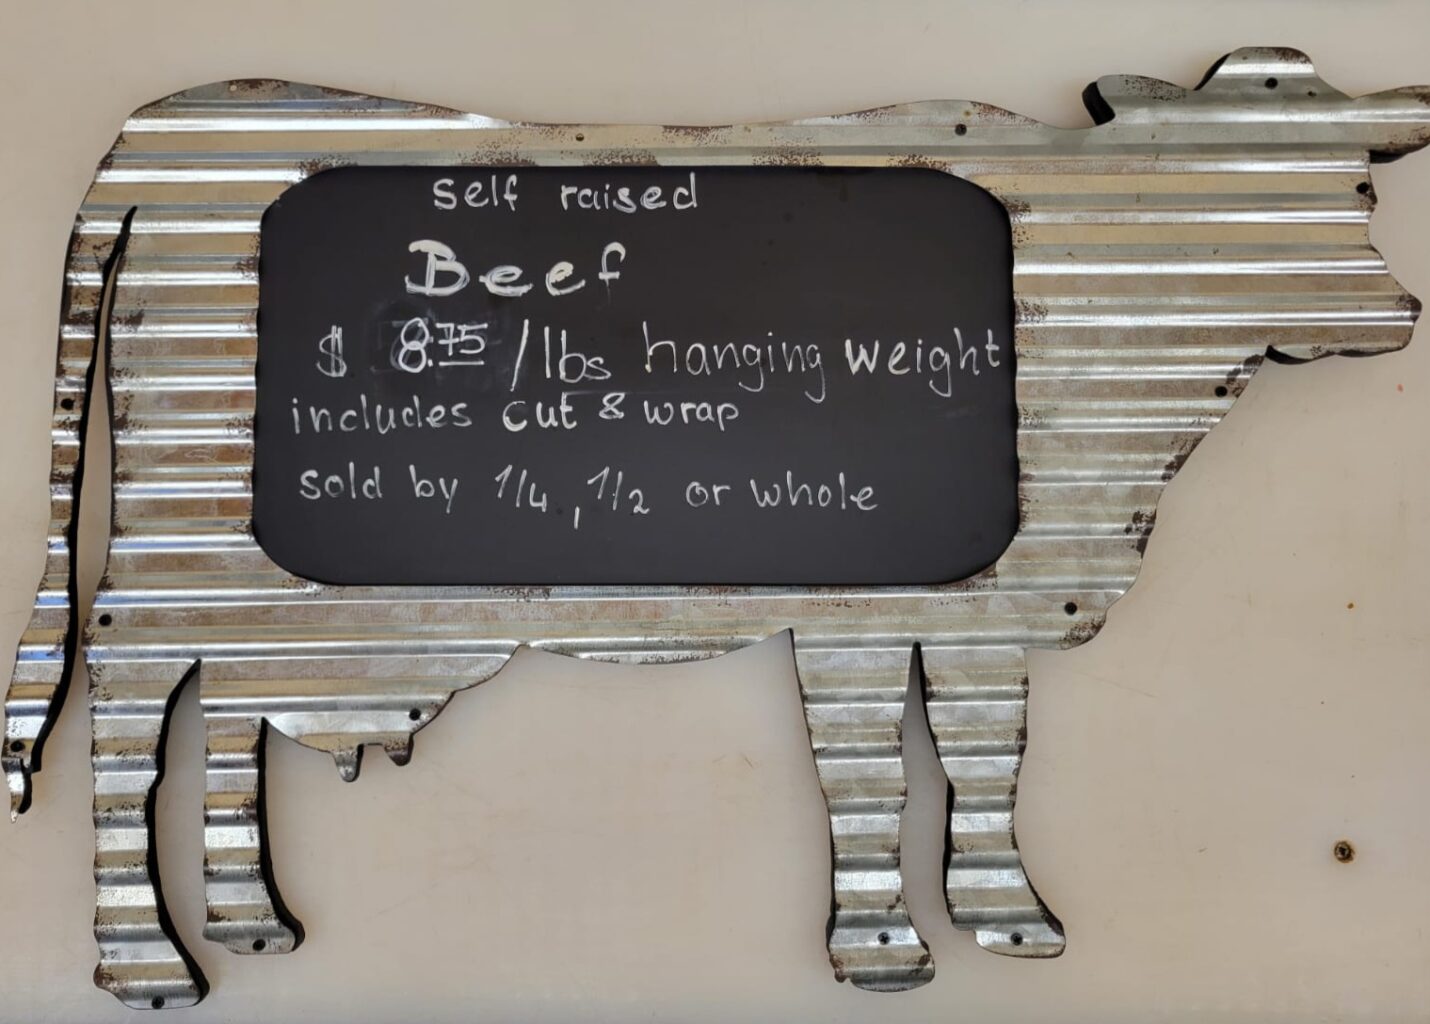 self raised
Beef
$ 8.75 /lbs hanging weight
includes cut & wrap
sold by 1/4, 1/2 or whole